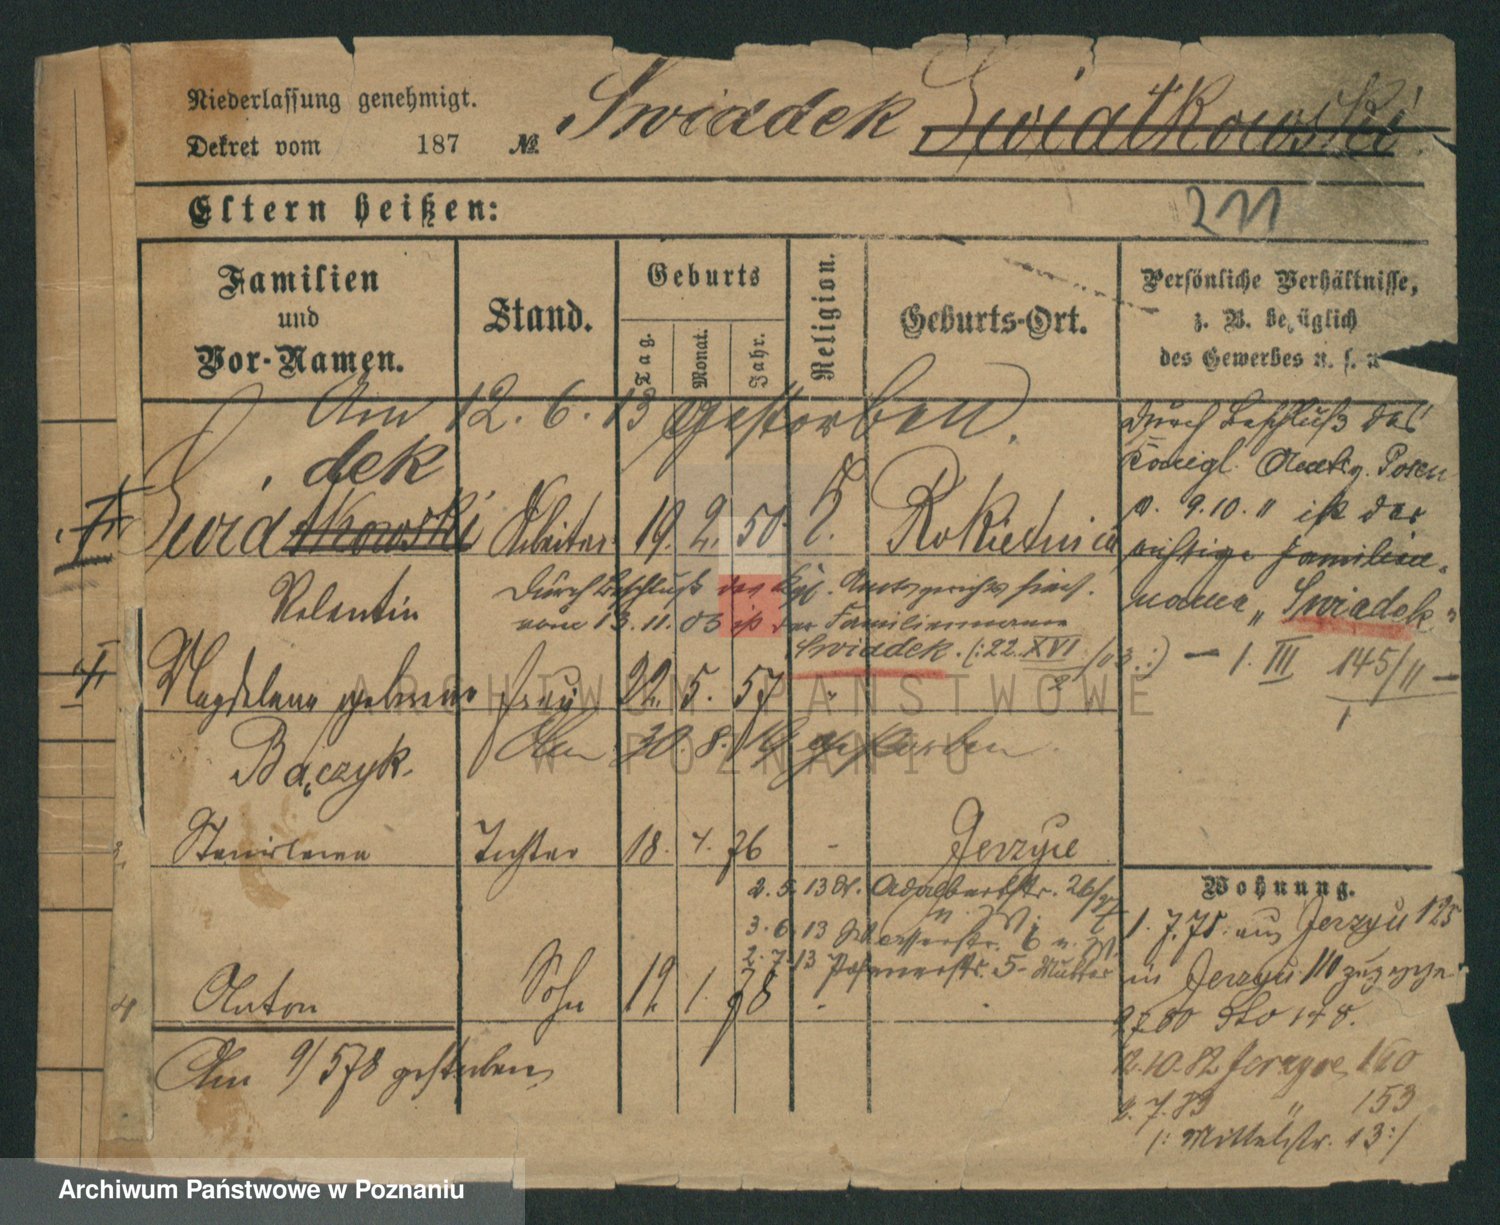 Niederlassung genehmigt.
Dekret vom 187 №
Swiadek Swiatkowski
Eltern heißen:
211
Familien
und
Vor-Namen.
Stand.
Geburts
Tag.
Monat.
Jahr.
Religion.
Geburts-Ort.
Persönliche Verhältnisse,
z. B. bezüglich
des Gewerbes u. s. w
Am 12. 6. 13 gestorben.
dek
Swiatkowski Arbeiter 19. 2. 50. Rokietnica
Valentin
Durch Beschluß des Kgl. Amtsgerichts hier.
vom 13. 11. 03 ist der Familienname
Swiadek. (:22. XVI /03.:)
2
Magdalena geborene Frau 22. 5. 57 "
Bączyk.
Am 30. 8. gestorben.
Stanislawa Tochter 18. 4. 76 - Jerzyce
2. 5. 13 Adalbertstr. 26/27
3. 6. 13 Schlosserstr. 6
2. 7. 13 5 Mutter
4 Anton Sohn 12. 1. 78 - -
Am 9/5 78 gestorben
Durch Beschluß des
Königl. Amtsg. Posen
v. 9.10. 11 ist der
richtige Familien-
name „Swiadek"
- 1. III 145/11 -
1
Wohnung.
1. 7. 78. aus Jerzyce 125
in Jerzyce 110
148.
2. 10. 82 Jerzyce 160
2. 7. 83 " 153
/: Mittelstr. 13 :/
ARCHIWUM PAŃSTWOWE
W POZNANIU
Archiwum Państwowe w Poznaniu